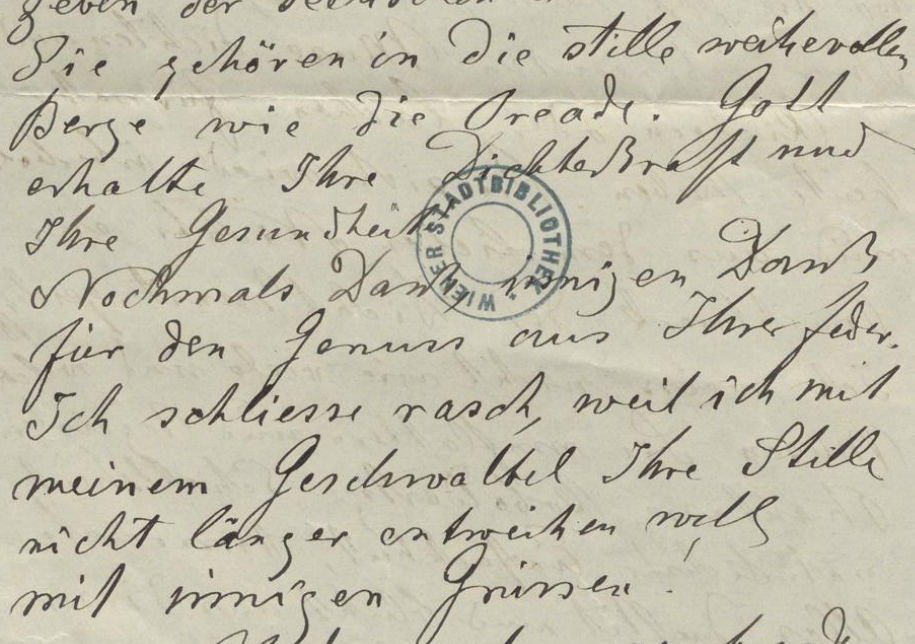 geben der
Sie gehören in die stille weihevollen
Berge wie die Oreade. Gott
erhalte Ihre Dichterkraft und
Ihre Gesundheit
WIENER STADTBIBLIOTHEK
Nochmals Dank, innigen Dank
für den Genuss aus Ihrer Feder.
Ich schliesse rasch, weil ich mit
meinem Geschwaltel Ihre Stille
nicht länger entweihen will
mit innigen Grüssen!